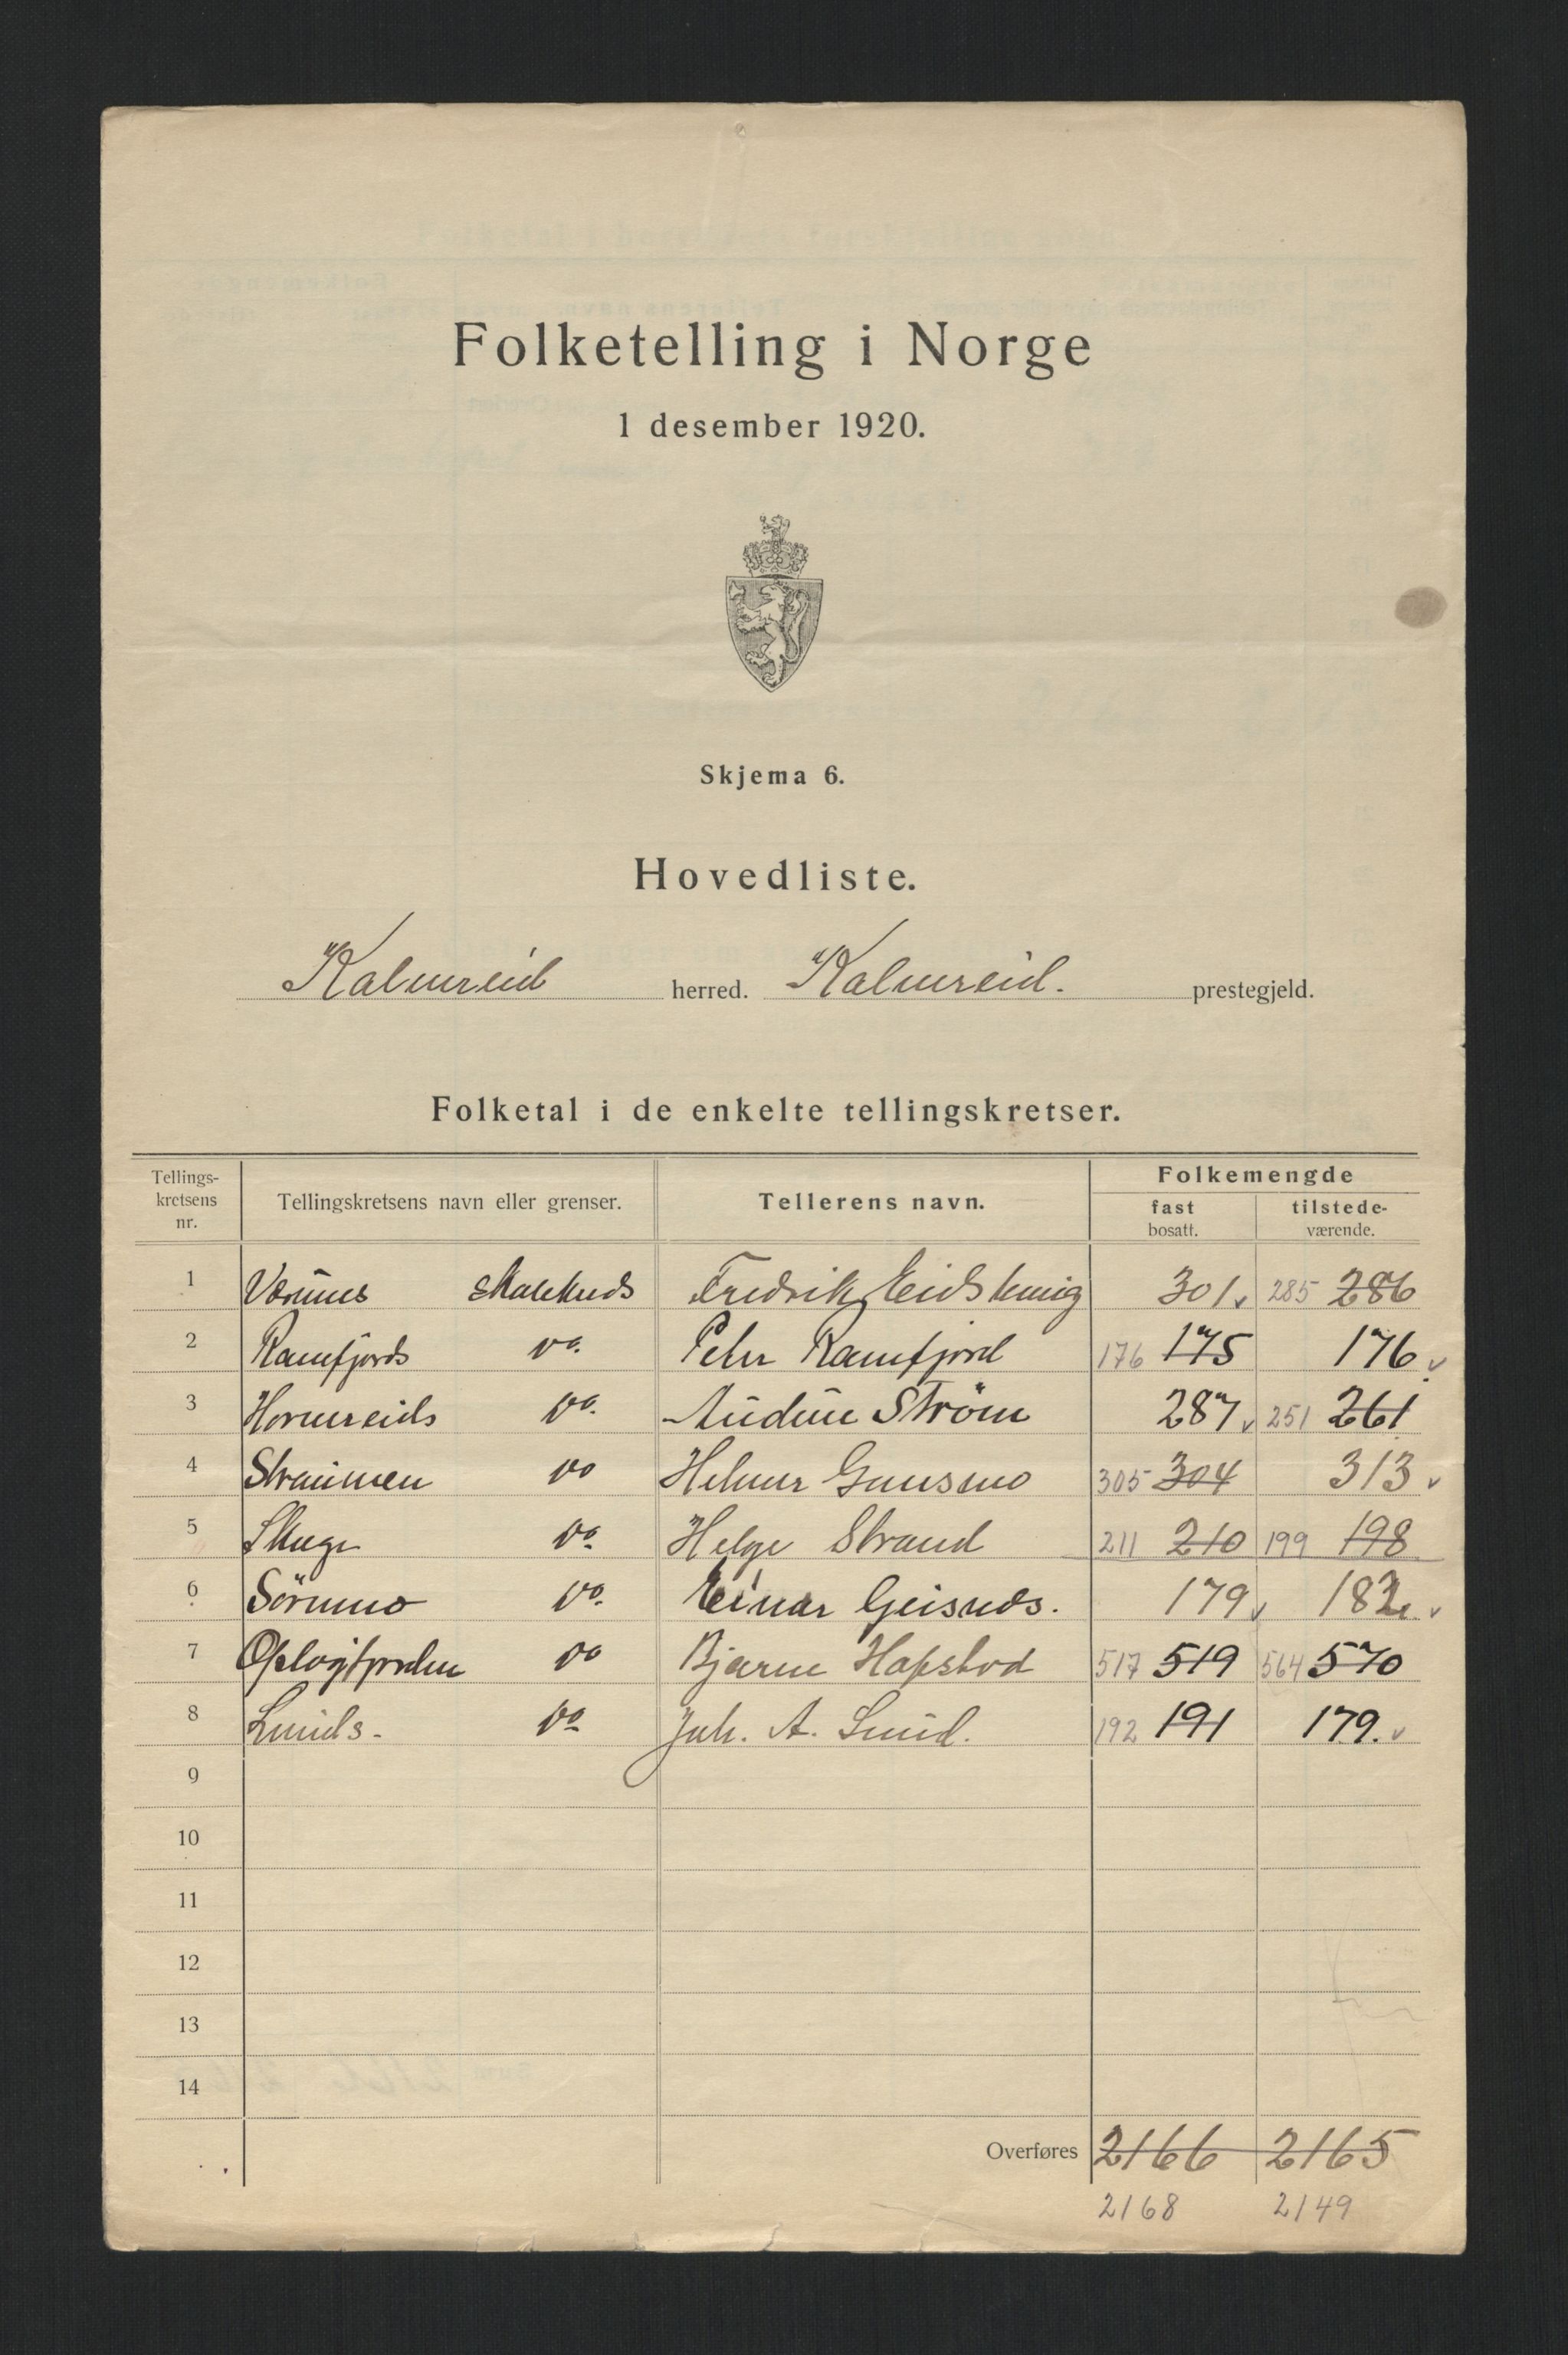 Folketelling i Norge
1 desember 1920.
Skjema 6.
Hovedliste.
Kolvereid herred. Kolvereid. prestegjeld.
Folketal i de enkelte tellingskretser.
Tellings-kretsens nr. Tellingskretsens navn eller grenser. Tellerens navn. Folkemengde
fast bosatt. tilstede-værende.
1 Værumes Fredrik 301 285 286
2 Ramfjords Do. Peter Ramfjord 176 175 176
3 Horvereids Do. Audun Ström 287 251 261
4 Straumen Do Helmer 305 304 313
5 Do. Helge Strand 211 210 199 198
6 Sörumo Do. Einar Geisnes. 179 182
7 Do Bjarne 517 519 564 570
8 Lunds- Do. Joh. A. Lund. 192 191 179.
9
10
11
12
13
14
Overføres 2166 2165
2168 2149